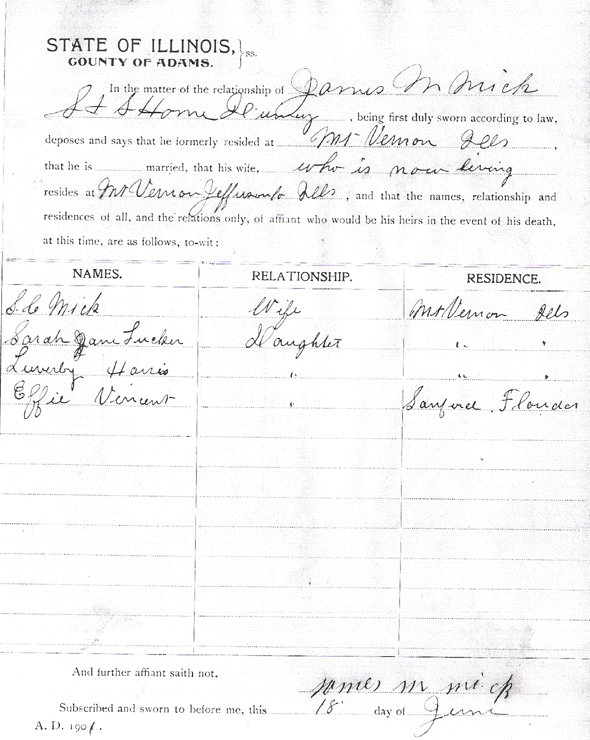 STATE OF ILLINOIS, } ss.
COUNTY OF ADAMS.
In the matter of the relationship of James M Mick
S & S Home Quincy, being first duly sworn according to law,
deposes and says that he formerly resided at Mt Vernon Ills,
that he is married, that his wife, who is now living
resides at Mt Vernon Ills, and that the names, relationship and
residences of all, and the relations only, of affiant who would be his heirs in the event of his death,
at this time, are as follows, to-wit:
NAMES. RELATIONSHIP. RESIDENCE.
Mick Wife Mt Vernon Ills
Sarah Jane Tucker Daughter " "
Harris " " "
Effie Vincent " Sanford, Florida
And further affiant saith not.
James M Mick
Subscribed and sworn to before me, this 18 day of June
A. D. 1901.